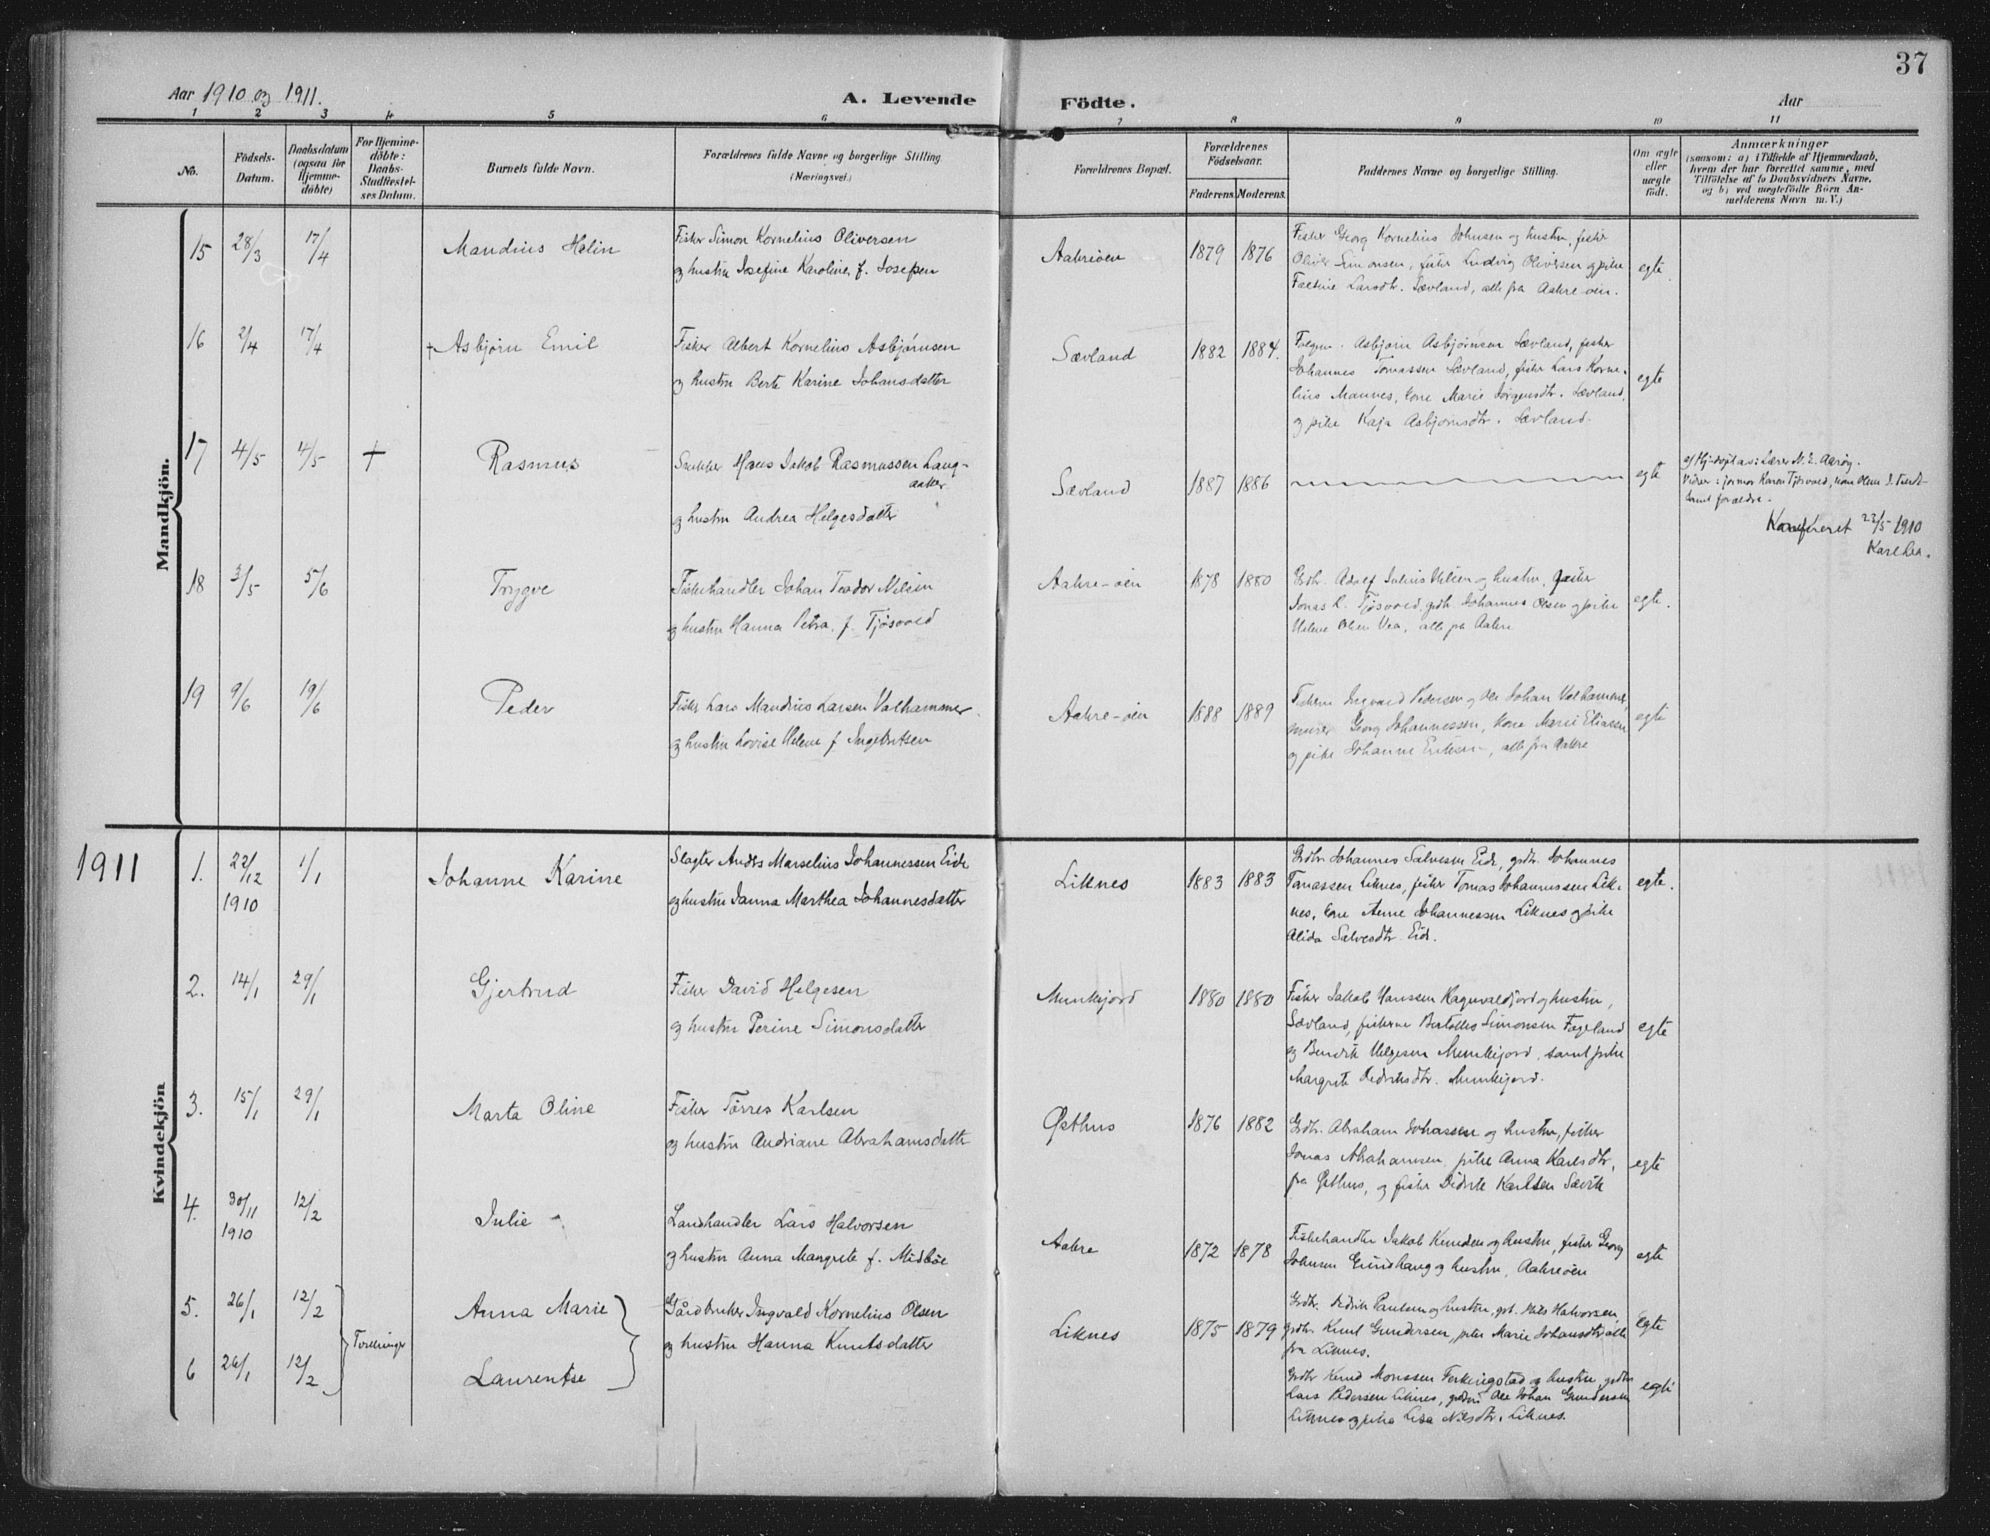 37
Aar 1910 og 1911.
A. Levende Födte.
Aar
1 2 3 4 5 6 7 8 9 10 11
No.
Födsels-Datum.
Daabsdatum (ogsaa for Hjemme-döbte)
For Hjemme-döbte: Daabs-Stadfæstel-ses Datum.
Barnets fulde Navn.
Forældrenes fulde Navne og borgerlige Stilling (Næringsvei.)
Forældrenes Bopæl.
Forældrenes Födselsaar.
Faderens. Moderens.
Faddernes Navne og borgerlige Stilling.
Om ægte eller uægte födt.
Anmærkninger
(saasom: a) i Tilfælde af Hjemmedaab,
hvem der har forrettet samme, med
Tilföielse af to Daabsvidners Navne.
og b) ved uægtefödte Börn An-
melderens Navn m. V.)
Mandkjön.
15 28/3 17/4 Mandius Halin
Fisker Simon Kornelius Oliversen
og hustru Josefine Karoline f. Josefsen
Aakreøen 1879 1876
Fisker Georg Kornelius Johnsen og hustru, fisker
Oliver Simonsen, fisker Ludvig Oliversen og pike
Larsdtr. Sævland, alle fra Aakre-øen.
egte.
16 2/4 17/4 + Asbjørn Emil
Fisker Albert Kornelius Asbjørnsen
og hustru Berte Karine Johansdatter
Sævland 1882 1884.
Asbjørn Asbjørnsen Sævland, fisker
Johannes Tomassen Sævland, fisker Lars Korne-
lius Mannes, kone Marie Jørgensdtr. Sævland,
og pike Kaja Asbjørnsdtr. Sævland.
egte
17 4/5 4/5 + Rasmus
Snekker Hans Jakob Rasmussen Lang-
aaker
og hustru Andrea Helgesdatter
Sævland 1887 1886
egte
Lærer N. E. Aarøy.
Karen Tjøsvold, kone
samt forældre.
23/5 1910
18 3/5 5/6 Trygve
Fiskehandler Johan Teodor Nilsen
og hustru Hanna Petra f. Tjøsvold
Aakre-øen 1878 1880
Grdbr. Adolf Julius Nilsen og hustru, fisker
Jonas L. Tjøsvold, grdbr. Johannes Olsen og pike
Helene Olsen Vea, alle fra Aakre
egte.
19 9/6 19/6 Peder
Fisker Lars Mandius Larsen Valhammer
og hustru Lovise Helene f. Ingebritsen
Aakre-øen 1888 1889
Fiskerne Ingvald Pedersen og Ole Johan Valhammer,
murer Georg Johannessen, kone Marie Eliassen
og pike Johanne Eriksen, alle fra Aakre
egte
1911
Kvindekjön
1. 22/12 1910 1/1 Johanne Karine
Slagter Anders Marselius Johannessen Eide
og hustru Janna Marthea Johannesdatter
Liknes 1883 1883
Grdbr. Johannes Salvesen Eide, grdbr. Johannes
Tomassen Liknes, fisker Tomas Johannessen Lik-
nes, kone Anne Johannessen Liknes og pike
Alida Salvesdtr. Eide.
egte.
2. 14/1 29/1 Gjertrud
Fisker David Helgesen
og hustru Perine Simonsdatter
Munkejord 1880 1880
Fisker Jakob Hanssen Ragnvaldjord og hustru,
Sævland, fiskerne Simonsen Fageland
og Bendik Helgesen Munkejord, samt pike
Margrete Didriksdtr. Munkejord.
egte
3. 15/1 29/1 Marta Oline
Fisker Tørres Karlsen
og hustru Andriane Abrahamsdatter
Østhus 1876 1882
Grdbr. Abraham Johassen og hustru, fisker
Jonas Abrahamsen, pike Anna Karlsdtr.
fra Østhus, og fisker Didrik Karlsen Sævik
egte
4. 30/11 1910 12/2 Julie
Landhandler Lars Halvorsen
og hustru Anna Margrete f. Midbøe
Aakre 1872 1878
Fiskehandler Jakob og hustru, fisker Georg
Johnsen Grindhaug og hustru, Aakreøen
egte
5. 26/1 12/2 Tvillinger Anna Marie
Gårdbruker Ingvald Kornelius Olsen
og hustru Hanna Knutsdatter
Liknes 1875 1879
Grdbr. Didrik Paulsen og hustru, grdbr. Nils Halvorsen,
grdbr. Knut Gundersen, pike Marie Johansdtr. alle
fra Liknes.
egte
6 26/1 12/2 Laurentse
Grdbr. Knud Monssen Ferkingstad og hustru, grdbr.
Lars Pedersen Liknes, Ole Johan Gundersen
Liknes og pike Lisa Nilsdtr. Liknes.
egte